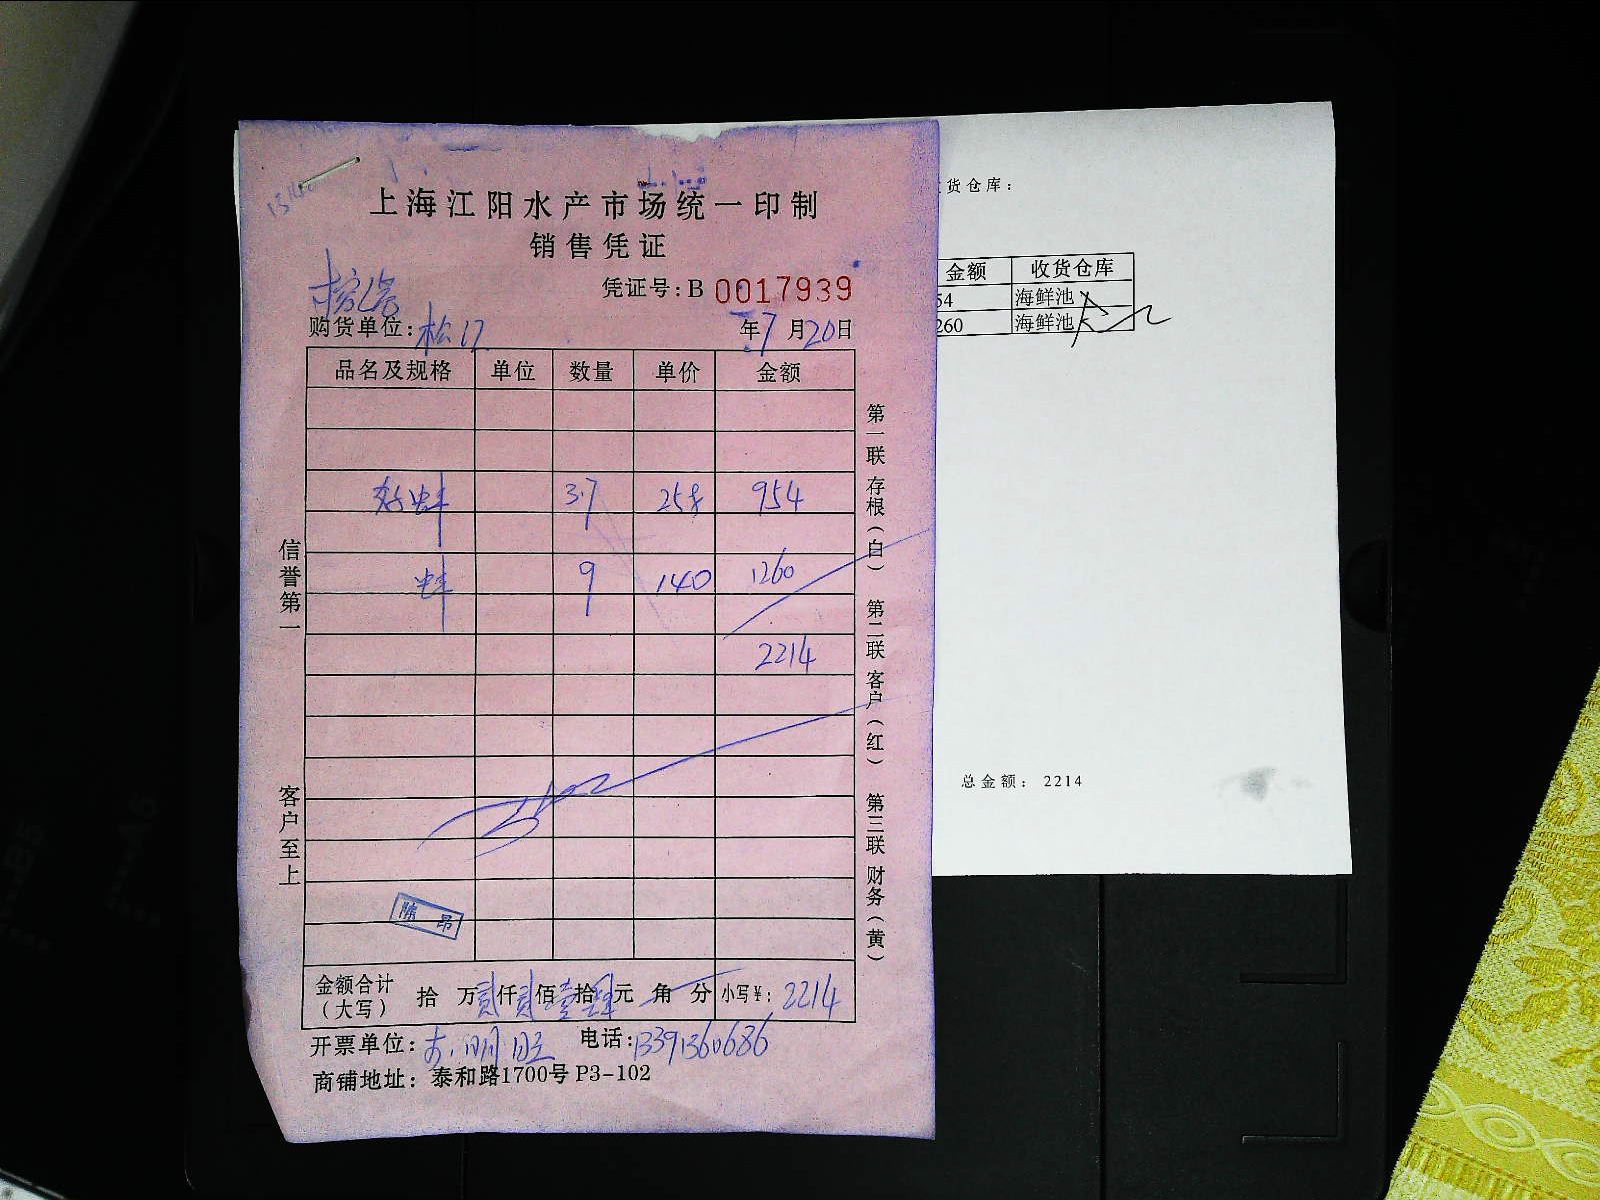 上海江阳水产市场统一印制
销售凭证
凭证号：B 0017939
购货单位：松江
年7月20日
品名及规格 单位 数量 单价 金额
3.7 258 954
9 140 1260
2214
陈昂
金额合计（大写） 拾 万贰仟贰佰壹拾肆元 角 分 小写￥：2214
开票单位： 电话：13391360686
商铺地址：泰和路1700号P3-102
信誉第一
客户至上
第一联 存根（白） 第二联 客户（红） 第三联 财务（黄）
货仓库：
金额 收货仓库
54 海鲜池
260 海鲜池
总金额：2214